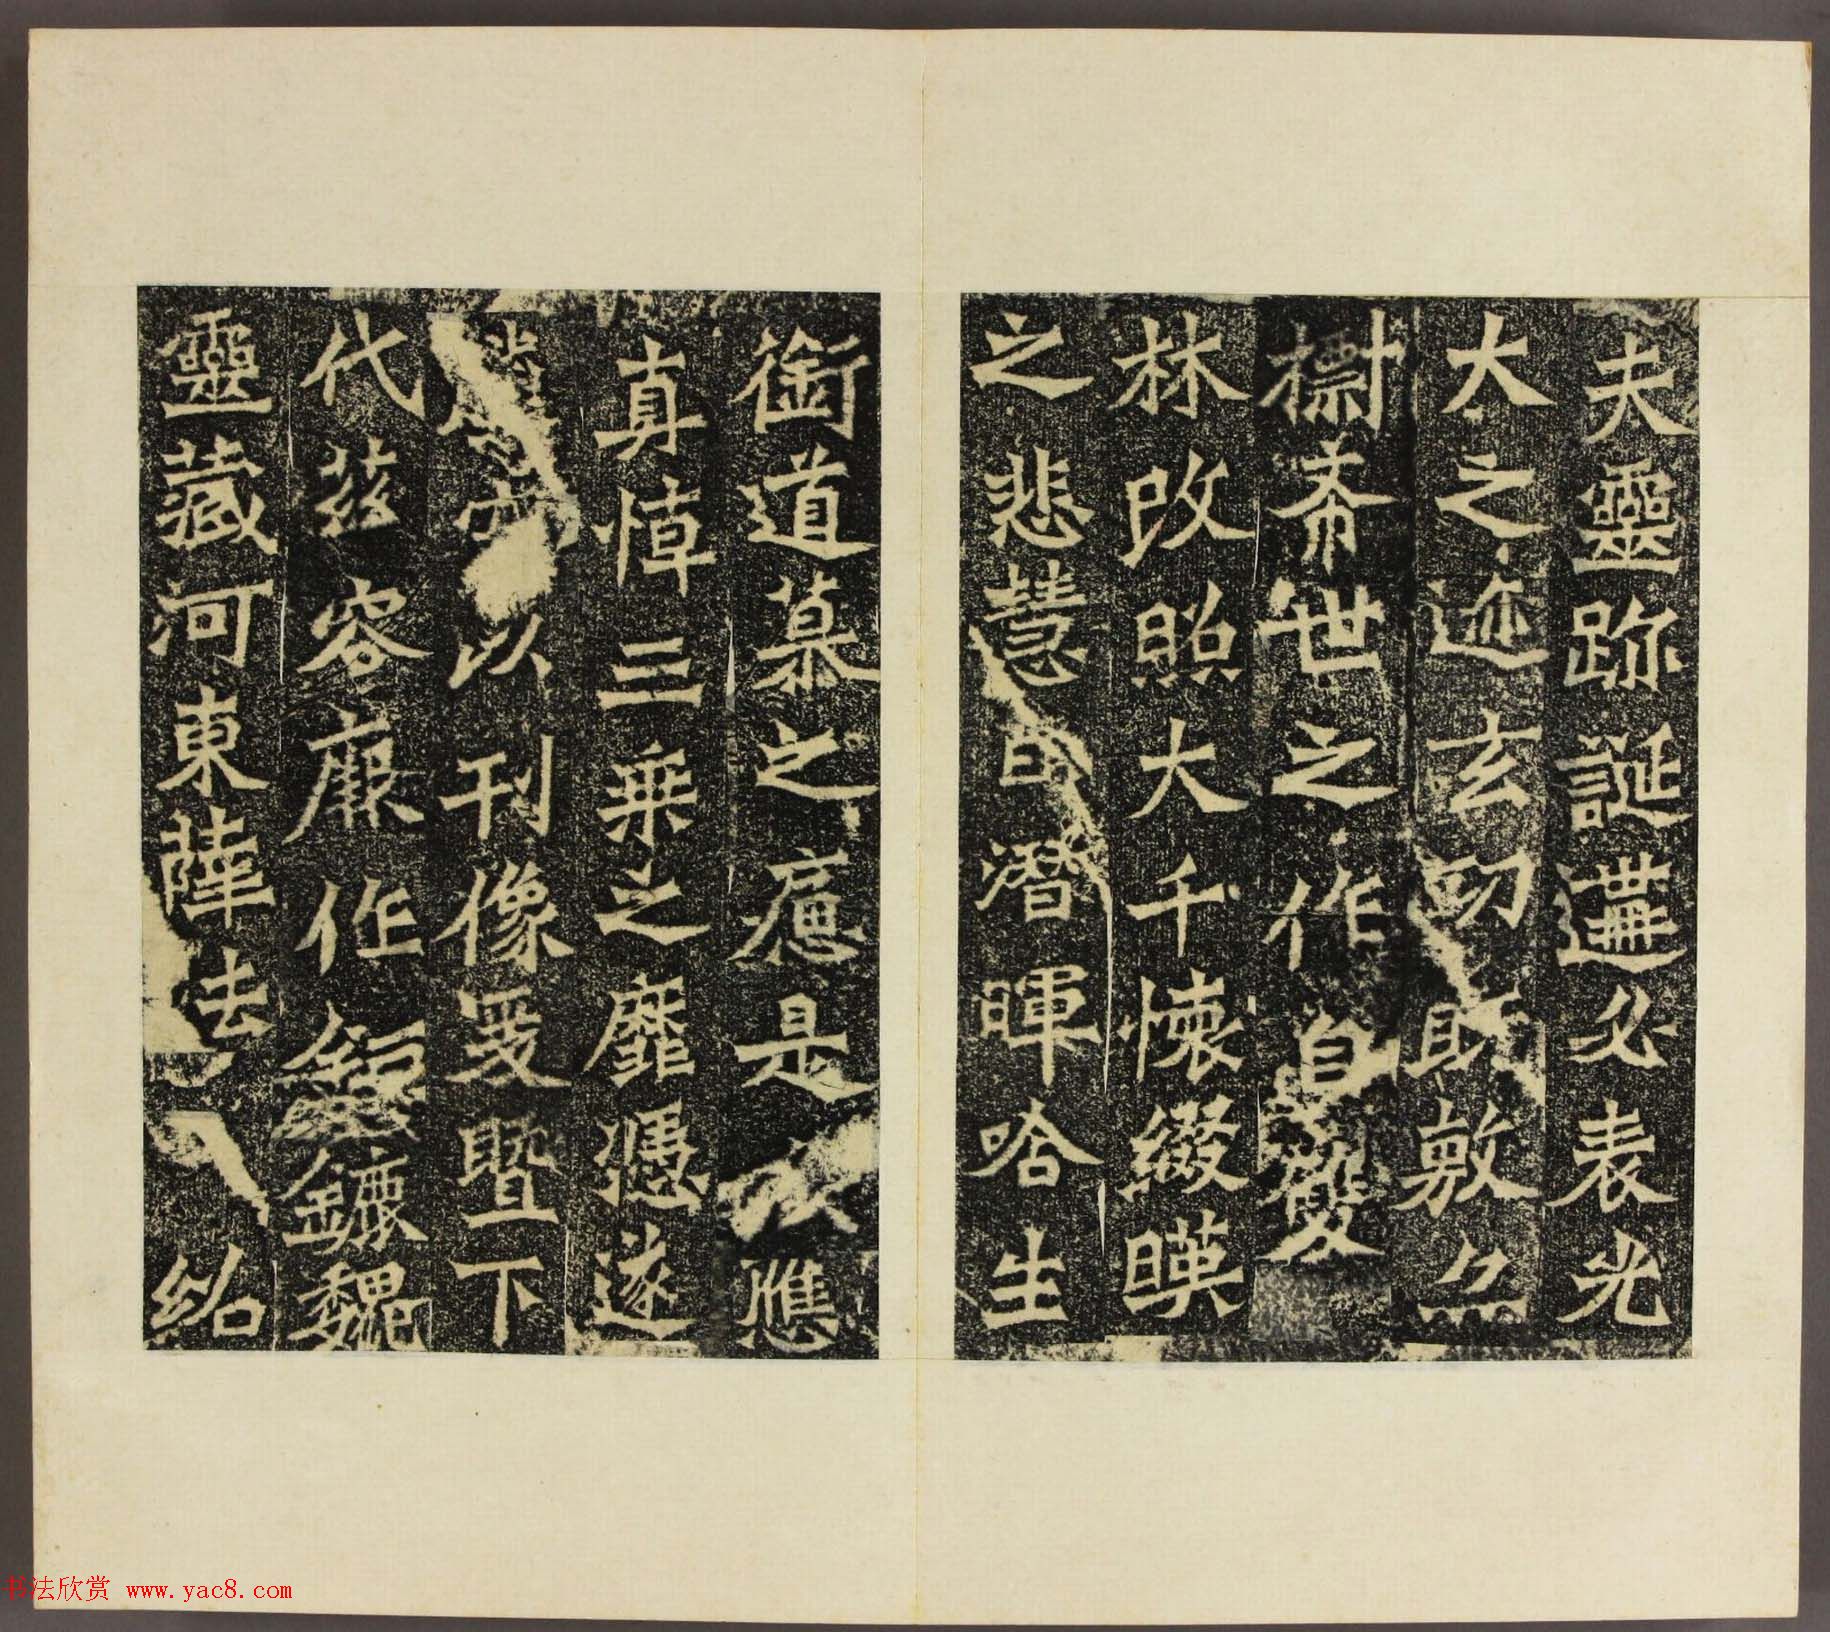 夫靈跡誕遘必表光
大之迹玄功既敷亦
標希世之作自雙
林改照大千懷綴暎
之悲慧日潛暉唅生
銜道慕之痛是 應
真悼三乘之靡憑遂
以刊像爰暨下
代茲容厥作 鑣魏
靈藏河東薛法紹
书法欣赏 www.yac8.com